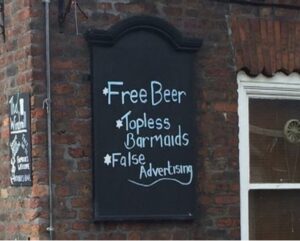 *Free Beer
*Topless
Barmaids
*False
Advertising